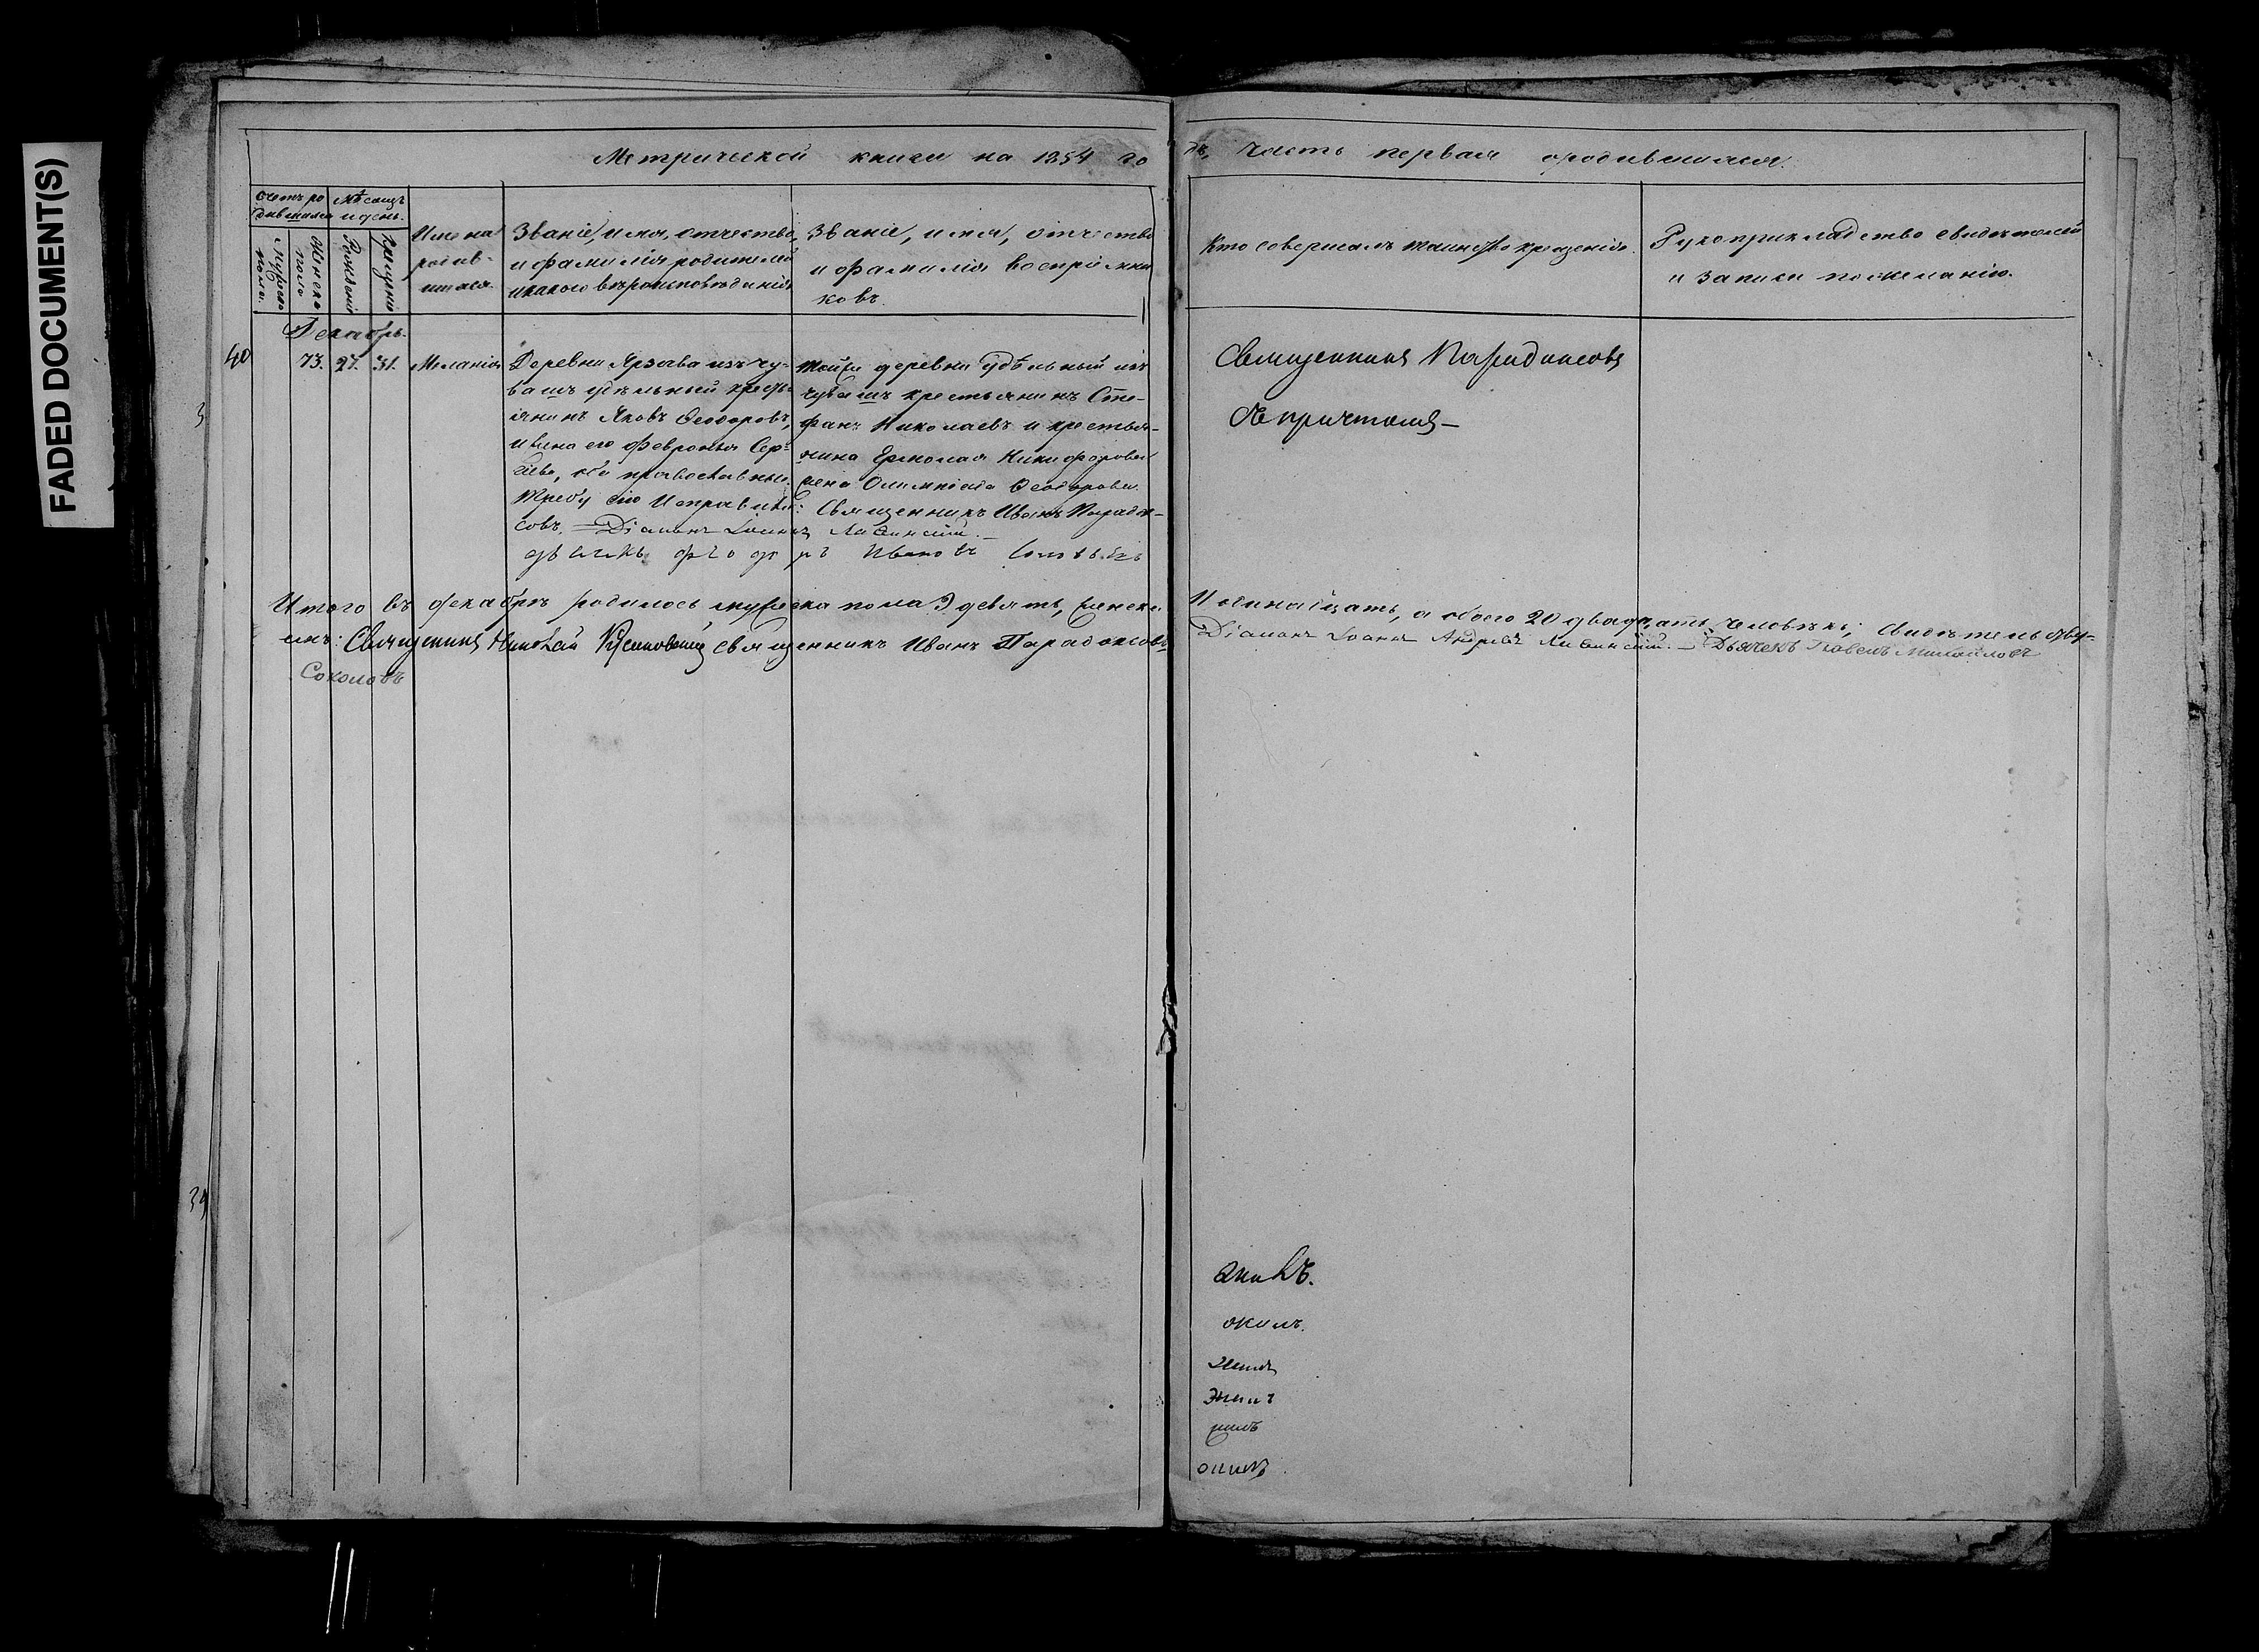 FADED DOCUMENT(S)
Метрической книги на 1854 го
дъ, часть первая о родившихся.
Счетъ ро
дившихся
Мѣсяцъ
и день.
Мужеска
пола.
Женска
пола
Рожденія
Крещенія
Имена
родив-
шихся.
Званіе, имя, отчество,
и фамилія родителей
и какого вѣроисповѣданія
Званіе, имя, отчество
и фамилія воспріемни
ковъ.
Кто совершалъ таинство крещенія.
Рукоприкладство свидѣтелей
и записи по желанію.
Декабрь.
40
73. 27. 31. Меланія
Деревни из чу-
вашъ удѣльный кресть-
янинъ Яковъ Ѳеодоровъ,
и жена его Февронья Сер-
гѣева, оба православные.
Требу сію исправлялъ: Священникъ Иванъ Парадок-
совъ. — Діаконъ Іоаннъ
Тойже деревни удѣльный изъ
чувашъ крестьянинъ Сте-
фанъ Николаевъ и крестья-
нина Ермолая Никифорова
жена Олимпіада Ѳеодорова.
Ивановъ
Священникъ Парадоксовъ
съ причтомъ —
Итого въ декабрѣ родилось мужеска пола 9 девять, женска
11 одинадцать, а обоего 20 двадцать человѣкъ; свидѣтельству-
емъ: Священникъ Николай священникъ Иванъ Парадоксовъ
Діаконъ Іоаннъ Андреевъ — Дьячекъ Павелъ Михайловъ
Соколовъ
3
39